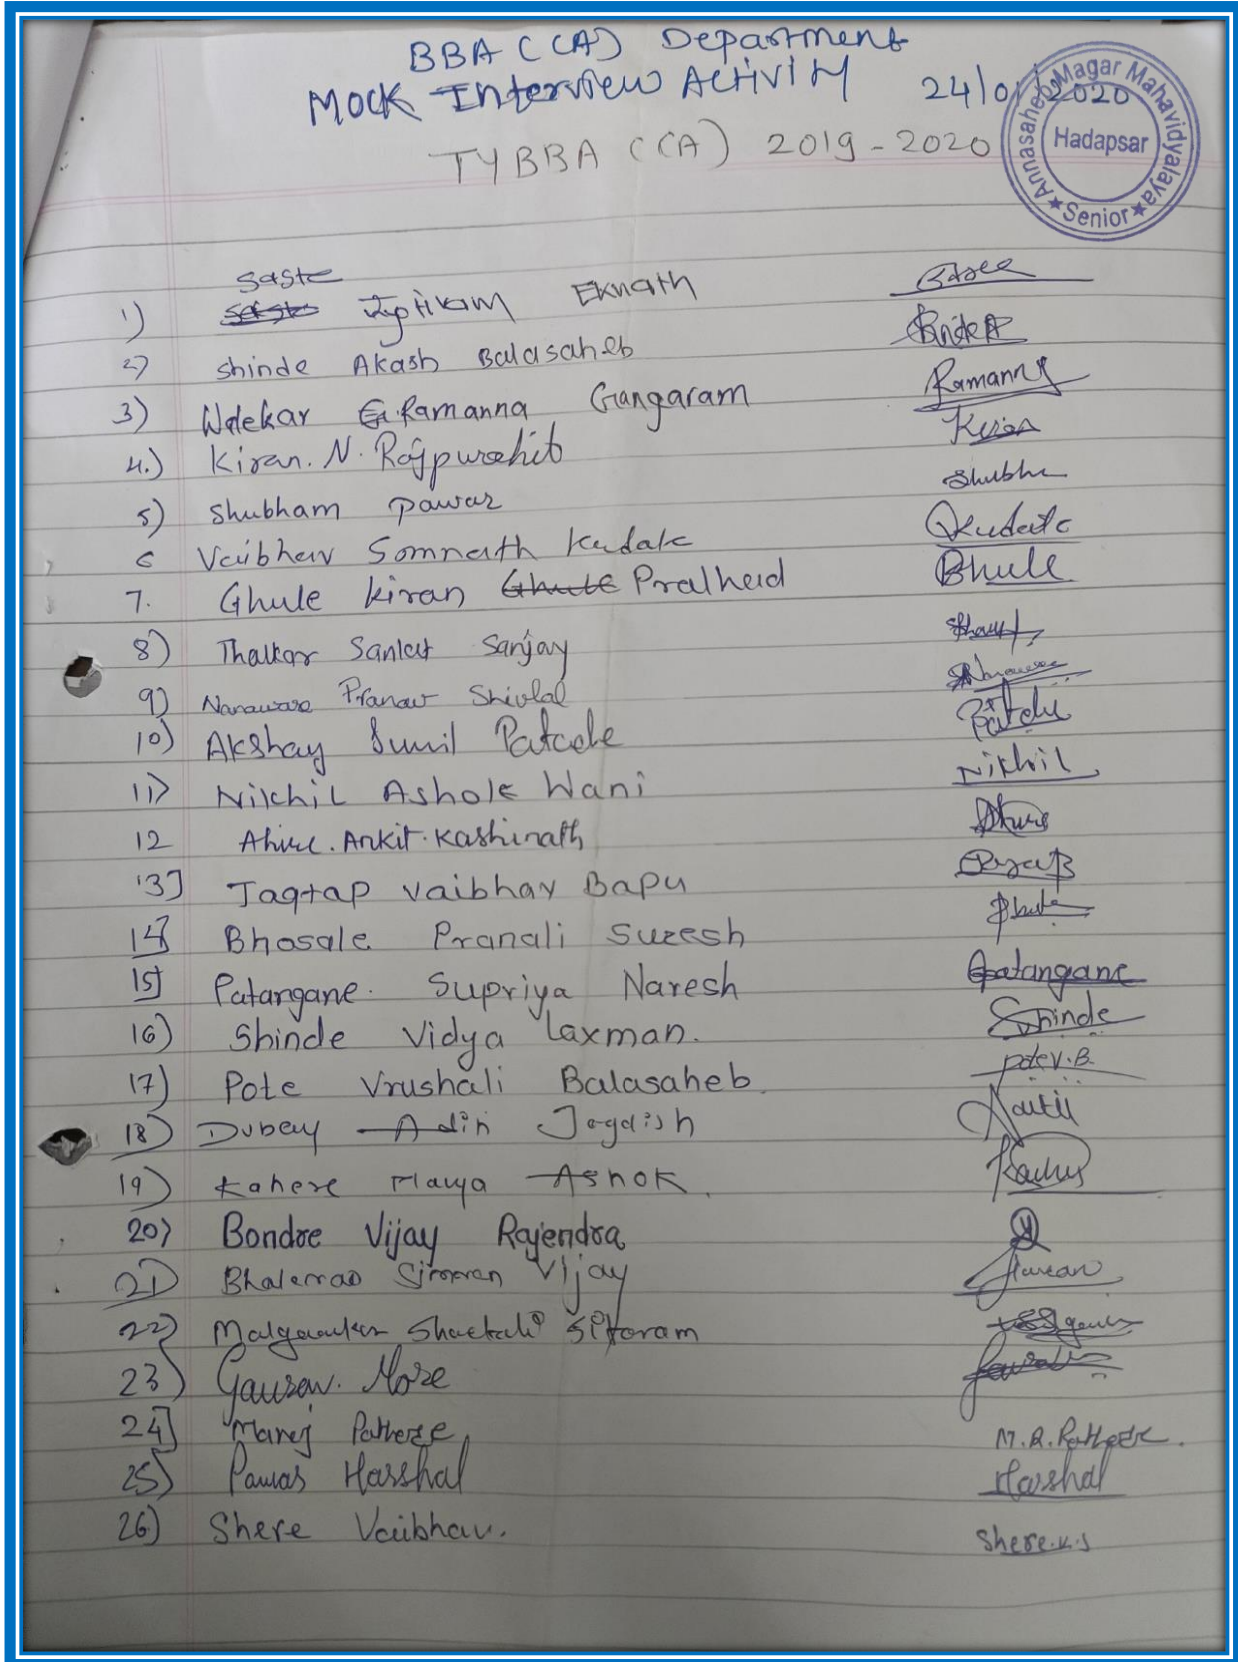 BBA (CA) Department
Mock Interview Activity 24/01/2020
TYBBA (CA) 2019-2020
Annasaheb Magar Mahavidyalaya
Hadapsar
★ Senior ★
Saste
1) Eknath
2) Shinde Akash Balasaheb
3) Ramanna Gangaram Ramanna
4.) Kiran. N. Rajpurohit Kiran
5) Shubham Pawar Shubha
6 Vaibhav Somnath Kudale Kudale
7. Ghule Kiran Ghule Pralhad Bhule
8) Thalkar Sanket Sanjay
9) Nanaware Pranav Shivlal Nanaware
10) Akshay Sunil
11) Nikhil Ashok Wani Nikhil
12 Ahire. Ankit. Kashinath Ahire
13] Jagtap Vaibhav Bapu
14] Bhosale Pranali Suresh
15] Patangane. Supriya Naresh Patangane
16) Shinde Vidya Laxman. Shinde
17) Pote Vrushali Balasaheb. Pote V.B.
18) Dubey Jagdish
19) Ashok.
20) Bondre Vijay Rajendra
21) Bhalerao Simran Vijay Simran
22) Sitaram
23) Gaurav. More
24] Manoj
25) Pawar Harshal Harshal
26) Shere Vaibhav. Shere.V.S